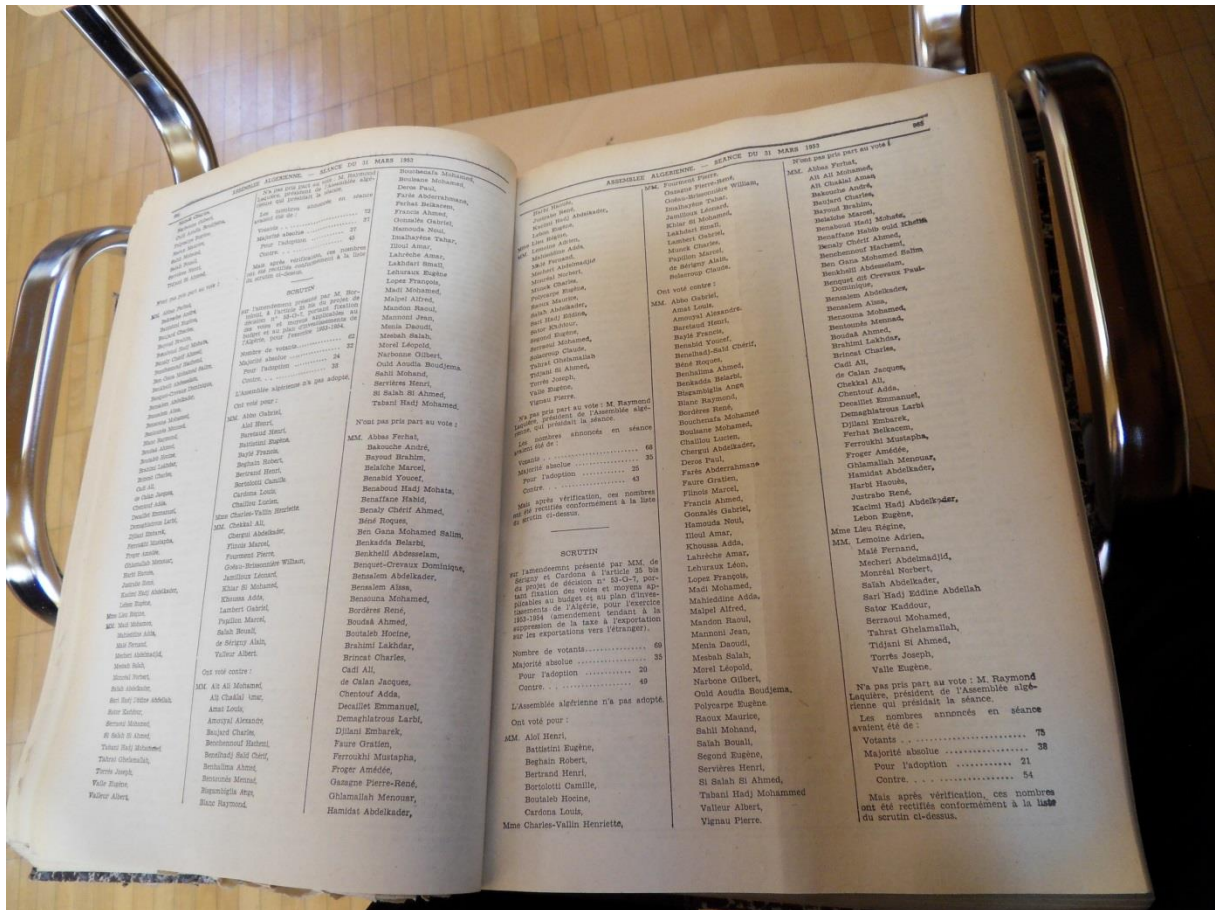 ASSEMBLEE ALGERIENNE. — SEANCE DU 31 MARS 1953
N'ont pas pris part au vote :
MM. Abbas Ferhat,
Bakouche André,
Battistini Eugène,
Baujard Charles,
Bayoud Brahim,
Belaïche Marcel,
Benaboud Hadj Mohata,
Benaly Chérif Ahmed,
Benchennouf Hachemi,
Ben Gana Mohamed Salim,
Benkhelil Abdesselam,
Benquet-Crevaux Dominique,
Bensalem Abdelkader,
Bensalem Aïssa,
Bensouna Mohamed,
Bentounès Mennad,
Blanc Raymond,
Boudaâ Ahmed,
Boutaleb Hocine,
Brahimi Lakhdar,
Brincat Charles,
Cadi Ali,
de Calan Jacques,
Chentouf Adda,
Decaillet Emmanuel,
Demaghlatrous Larbi,
Djilani Embarek,
Ferroukhi Mustapha,
Froger Amédée,
Ghlamallah Menouar,
Harbi Haouès,
Justrabo René,
Kacimi Hadj Abdelkader,
Lebon Eugène,
Mme Lieu Régine,
MM. Madi Mohamed,
Mahieddine Adda,
Malé Fernand,
Mecheri Abdelmadjid,
Mesbah Salah,
Monréal Norbert,
Salah Abdelkader,
Sari Hadj Eddine Abdellah,
Sator Kaddour,
Serraoui Mohamed,
Si Salah Si Ahmed,
Tabani Hadj Mohammed,
Tahrat Ghelamallah,
Torrès Joseph,
Valle Eugène,
Valleur Albert,
N'a pas pris part au vote : M. Raymond
Laquière, président de l'Assemblée algé-
rienne qui présidait la séance.
Les nombres annoncés en séance
avaient été de :
Mais après vérification, ces nombres
ont été rectifiés conformément à la liste
du scrutin ci-dessus.
SCRUTIN
Nombre de votants
Majorité absolue
Pour l'adoption 24
Contre. 38
L'Assemblée algérienne n'a pas adopté.
Ont voté pour :
MM. Abbo Gabriel,
Aloi Henri,
Baretaud Henri,
Battistini Eugène,
Baylé Francis,
Beghain Robert,
Bertrand Henri,
Bortolotti Camille
Cardona Louis,
Chaillou Lucien,
Mme Charles-Vallin Henriette
MM. Chekkal Ali,
Chergui Abdelkader,
Filnois Marcel,
Fourment Pierre,
Goëau-Brissonnière William,
Jamilloux Léonard,
Khiar Si Mohamed,
Khoussa Adda,
Lambert Gabriel,
Pupillon Marcel,
Salah Bouali,
de Sérigny Alain,
Valleur Albert.
Ont voté contre :
MM. Ait Ali Mohamed,
Aït Chaâlal Amar,
Amat Louis,
Amouyal Alexandre,
Baujard Charles,
Benchennouf Hachemi,
Benelhadj Saïd Chérif,
Benhalima Ahmed,
Bentounès Mennad,
Bisgambiglia Ange,
Blanc Raymond,
Bouchenafa Mohamed,
Boulsane Mohamed,
Deros Paul,
Farès Abderrahmane,
Ferhat Belkacem,
Francis Ahmed,
Gonzalès Gabriel,
Hamouda Noui,
Imalhayène Tahar,
Illoul Amar,
Lahrèche Amar,
Lakhdari Smaïl,
Lehuraux Eugène
Lopez François,
Madi Mohamed,
Malpel Alfred,
Mandon Raoul,
Mannoni Jean,
Menia Daoudi,
Mesbah Salah,
Morel Léopold,
Narbonne Gilbert,
Ould Aoudia Boudjema,
Sahli Mohand,
Servières Henri,
Si Salah Si Ahmed,
Tabani Hadj Mohamed,
N'ont pas pris part au vote :
MM. Abbas Ferhat,
Bakouche André,
Bayoud Brahim,
Belaïche Marcel,
Benabid Youcef,
Benaboud Hadj Mohata,
Benaffane Habid,
Benaly Chérif Ahmed,
Béné Roques,
Ben Gana Mohamed Salim,
Benkadda Belarbi,
Benkhelil Abdesselam,
Benquet-Crevaux Dominique,
Bensalem Abdelkader,
Bensalem Aïssa,
Bensouna Mohamed,
Bordères René,
Boudaâ Ahmed,
Boutaleb Hocine,
Brahimi Lakhdar,
Brincat Charles,
Cadi Ali,
de Calan Jacques,
Chentouf Adda,
Decaillet Emmanuel,
Demaghlatrous Larbi,
Djilani Embarek,
Faure Gratien,
Ferroukhi Mustapha,
Froger Amédée,
Gazagne Pierre-René,
Ghlamallah Menouar,
Hamidat Abdelkader,
ASSEMBLEE ALGERIENNE. — SEANCE DU 31 MARS 1953
Harbi Haouès,
Justrabo René,
Kacimi Hadj Abdelkader,
Lebon Eugène,
Mme Lieu Régine,
MM. Lemoine Adrien,
Mahieddine Adda,
Malé Fernand,
Mecheri Abdelmadjid
Monréal Norbert,
Munck Charles,
Polycarpe Eugène,
Raoux Maurice,
Salah Abdelkader,
Sari Hadj Eddine,
Sator Kaddour,
Segond Eugène,
Serraoui Mohamed,
Solacroup Claude,
Tahrat Ghelamallah
Tidjani Si Ahmed,
Torrès Joseph,
Valle Eugène,
Vignau Pierre.
N'a pas pris part au vote : M. Raymond
Laquière, président de l'Assemblée algé-
rienne, qui présidait la séance.
Les nombres annoncés en séance
avaient été de :
Votants 68
Majorité absolue 35
Pour l'adoption 25
Contre. 43
Mais après vérification, ces nombres
ont été rectifiés conformément à la liste
du scrutin ci-dessus.
SCRUTIN
sur l'amendemnt présenté par MM. de
Sérigny et Cardona à l'article 35 bis
du projet de décision n° 53-G-7, por-
tant fixation des voies et moyens ap-
plicables au budget et au plan d'inves-
tissements de l'Algérie, pour l'exercice
1953-1954 (amendement tendant à la
suppression de la taxe à l'exportation
sur les exportations vers l'étranger).
Nombre de votants 69
Majorité absolue 35
Pour l'adoption 20
Contre. 49
L'Assemblée algérienne n'a pas adopté.
Ont voté pour :
MM. Aloi Henri,
Battistini Eugène,
Beghain Robert,
Bertrand Henri,
Bortolotti Camille,
Boutaleb Hocine,
Cardona Louis,
Mme Charles-Vallin Henriette,
MM. Fourment Pierre,
Gazagne Pierre-René,
Goëau-Brissonnière William,
Imalhayène Tahar,
Jamilloux Léonard,
Khiar Si Mohamed,
Lakhdari Smaïl,
Lambert Gabriel,
Munck Charles,
Pupillon Marcel,
de Sérigny Alain,
Solacroup Claude.
Ont voté contre :
MM. Abbo Gabriel,
Amat Louis,
Amouyal Alexandre,
Baretaud Henri,
Baylé Francis,
Benabid Youcef,
Benelhadj-Saïd Chérif,
Béné Roques,
Benhalima Ahmed,
Benkadda Belarbi,
Bisgambiglia Ange
Blanc Raymond,
Bordères René,
Bouchenafa Mohamed
Boulsane Mohamed,
Chaillou Lucien,
Chergui Abdelkader,
Deros Paul,
Farès Abderrahmane
Faure Gratien,
Filnois Marcel,
Francis Ahmed,
Gonzalès Gabriel,
Hamouda Noui,
Illoul Amar,
Khoussa Adda,
Lahrèche Amar,
Lehuraux Léon,
Lopez François,
Madi Mohamed,
Mahieddine Adda,
Malpel Alfred,
Mandon Raoul,
Mannoni Jean,
Menia Daoudi,
Mesbah Salah,
Morel Léopold,
Narbone Gilbert,
Ould Aoudia Boudjema,
Polycarpe Eugène.
Raoux Maurice,
Sahli Mohand,
Salah Bouali,
Segond Eugène,
Servières Henri,
Si Salah Si Ahmed,
Tabani Hadj Mohammed
Valleur Albert,
Vignau Pierre.
N'ont pas pris part au vote :
MM. Abbas Ferhat,
Aït Ali Mohamed,
Aït Chaâlal Amar,
Bakouche André,
Baujard Charles,
Bayoud Brahim,
Belaïche Marcel,
Benaboud Hadj Mohata,
Benaffane Habib ould Khelifa
Benaly Chérif Ahmed,
Benchennouf Hachemi,
Ben Gana Mohamed Salim
Benkhelil Abdesselam,
Benquet dit Crevaux Paul-
Dominique,
Bensalem Abdelkader,
Bensalem Aïssa,
Bensouna Mohamed,
Bentounès Mennad,
Boudaâ Ahmed,
Brahimi Lakhdar,
Brincat Charles,
Cadi Ali,
de Calan Jacques,
Chekkal Ali,
Chentouf Adda,
Decaillet Emmanuel,
Demaghlatrous Larbi
Djilani Embarek,
Ferhat Belkacem,
Ferroukhi Mustapha,
Froger Amédée,
Ghlamallah Menouar,
Hamidat Abdelkader,
Harbi Haouès,
Justrabo René,
Kacimi Hadj Abdelkader,
Lebon Eugène,
Mme Lieu Régine,
MM. Lemoine Adrien,
Malé Fernand,
Mecheri Abdelmadjid,
Monréal Norbert,
Salah Abdelkader,
Sari Hadj Eddine Abdellah
Sator Kaddour,
Serraoui Mohamed,
Tahrat Ghelamallah,
Tidjani Si Ahmed,
Torrès Joseph,
Valle Eugène.
N'a pas pris part au vote : M. Raymond
Laquière, président de l'Assemblée algé-
rienne qui présidait la séance.
Les nombres annoncés en séance
avaient été de :
Votants 75
Majorité absolue 38
Pour l'adoption 21
Contre. 54
Mais après vérification, ces nombres
ont été rectifiés conformément à la liste
du scrutin ci-dessus.